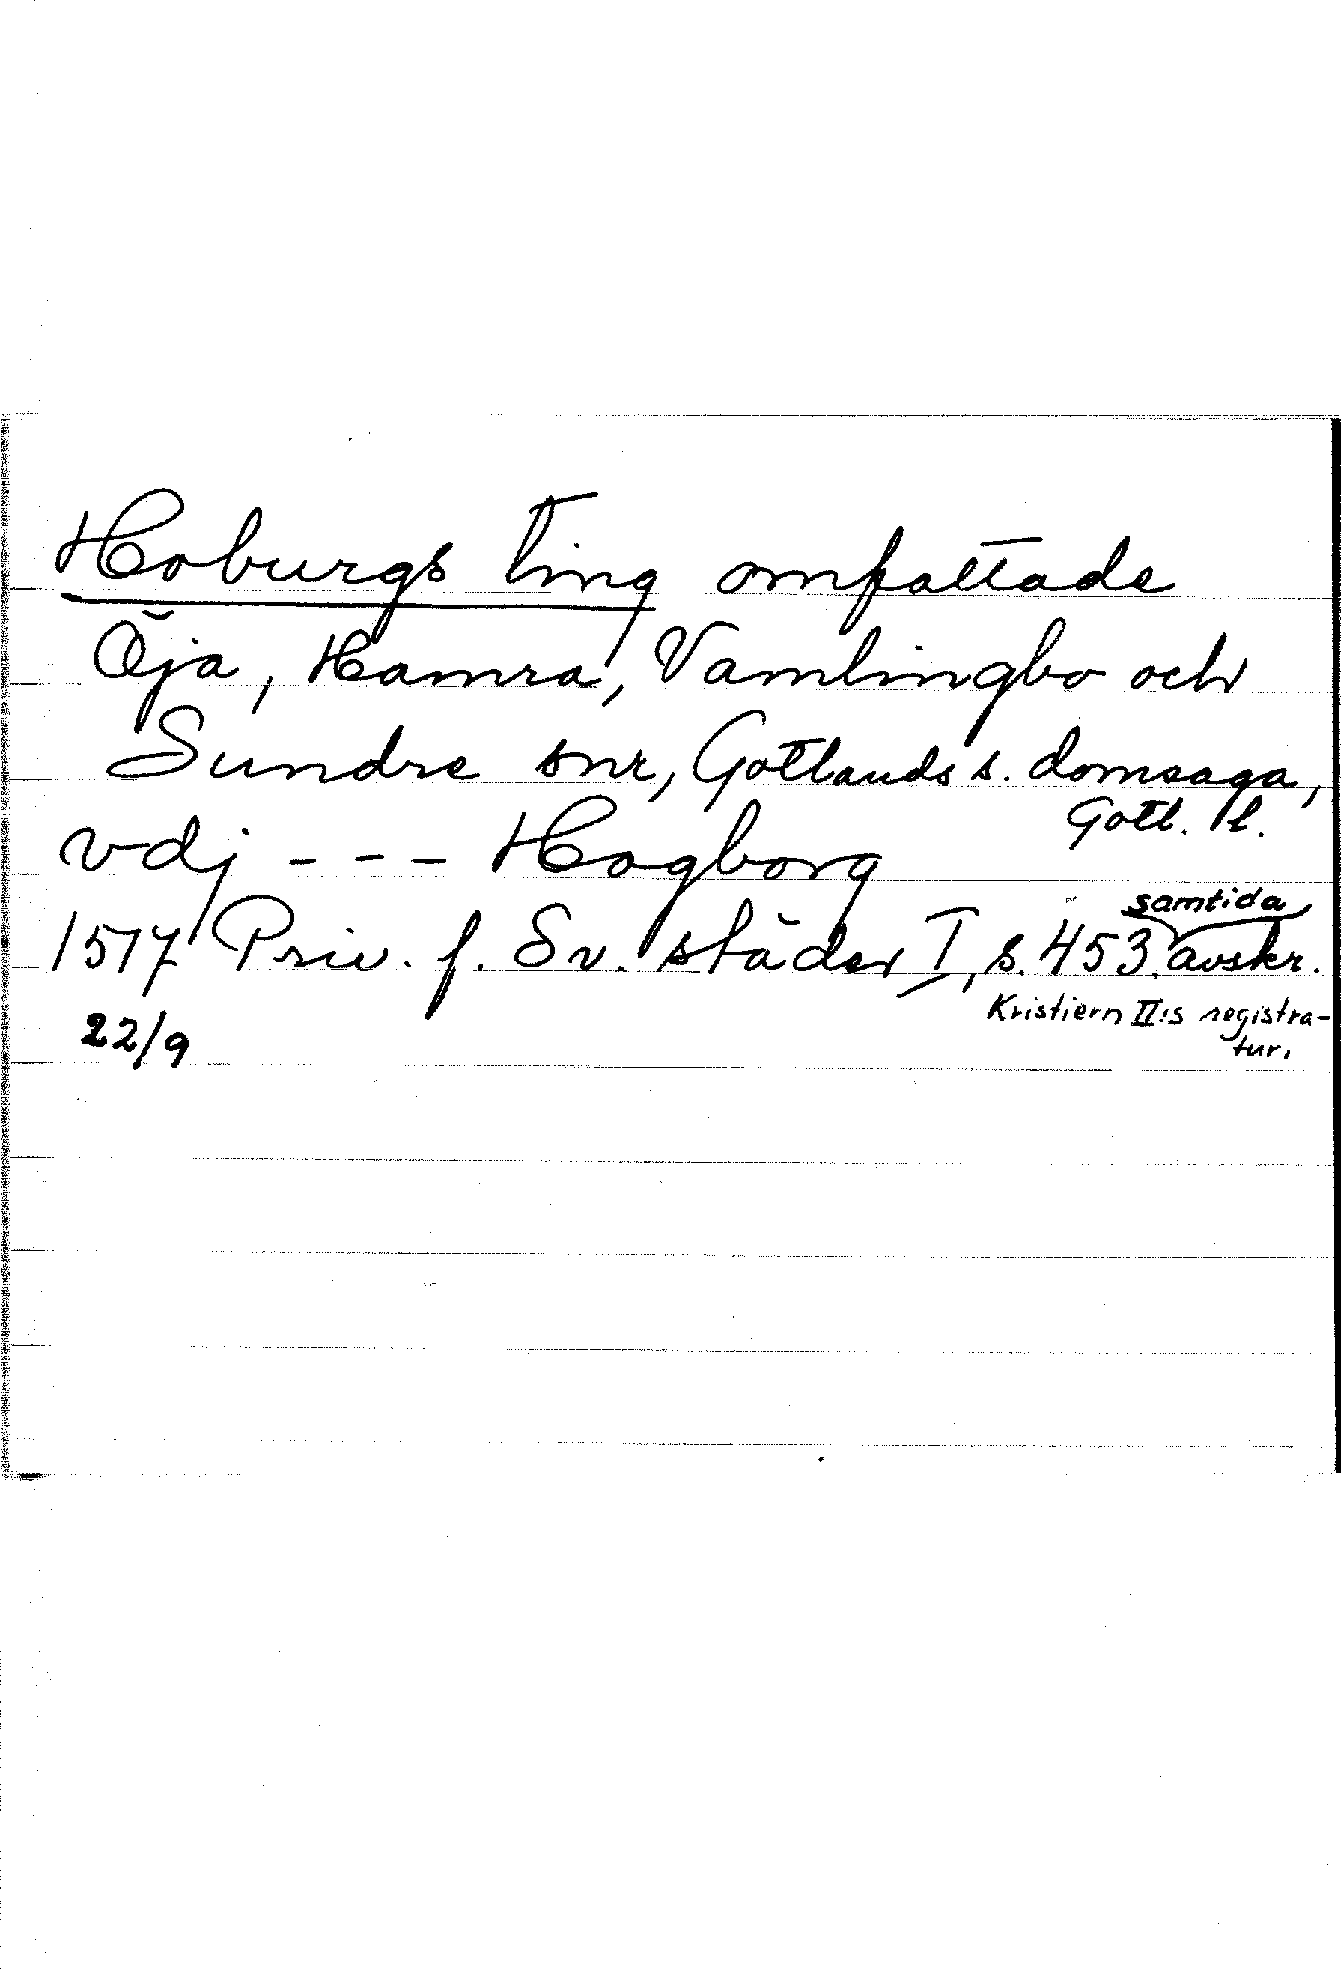 Hoburgs ting omfattade
Öja, Hamra, Vamlingbo och
Sundre snr, Gotlands s. domsaga,
Gotl. l.
vdj - - - Hogborg
1517 Priv. f. Sv. städer I, s. 453. samtida avskr.
22/9
Kristiern II:s registra-
tur.